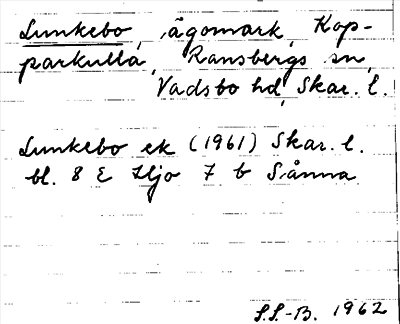 Lunkebo, ägomark, Kop-
parkulla, Ransbergs sn,
Vadsbo hd, Skar. l.
Lunkebo ek (1961) Skar. l.
bl. 8 E Hjo 7 b Sånna
S.S.-B. 1962